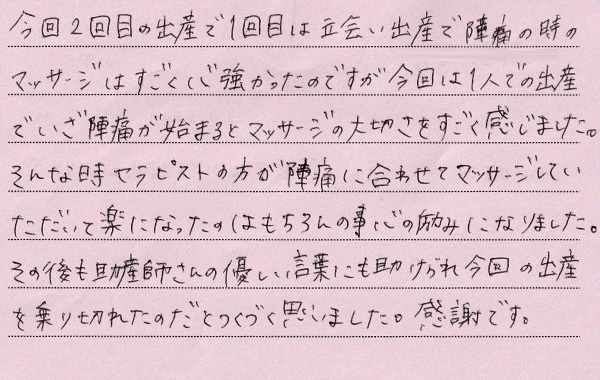 今回2回目の出産で1回目は立会い出産で陣痛の時の
マッサージはすごく心強かったのですが今回は1人での出産
でいざ陣痛が始まるとマッサージの大切さをすごく感じました。
そんな時セラピストの方が陣痛に合わせてマッサージしてい
ただいて楽になったのはもちろんの事心の励みになりました。
その後も助産師さんの優しい言葉にも助けられ今回の出産
を乗り切れたのだとつくづく思いました。感謝です。